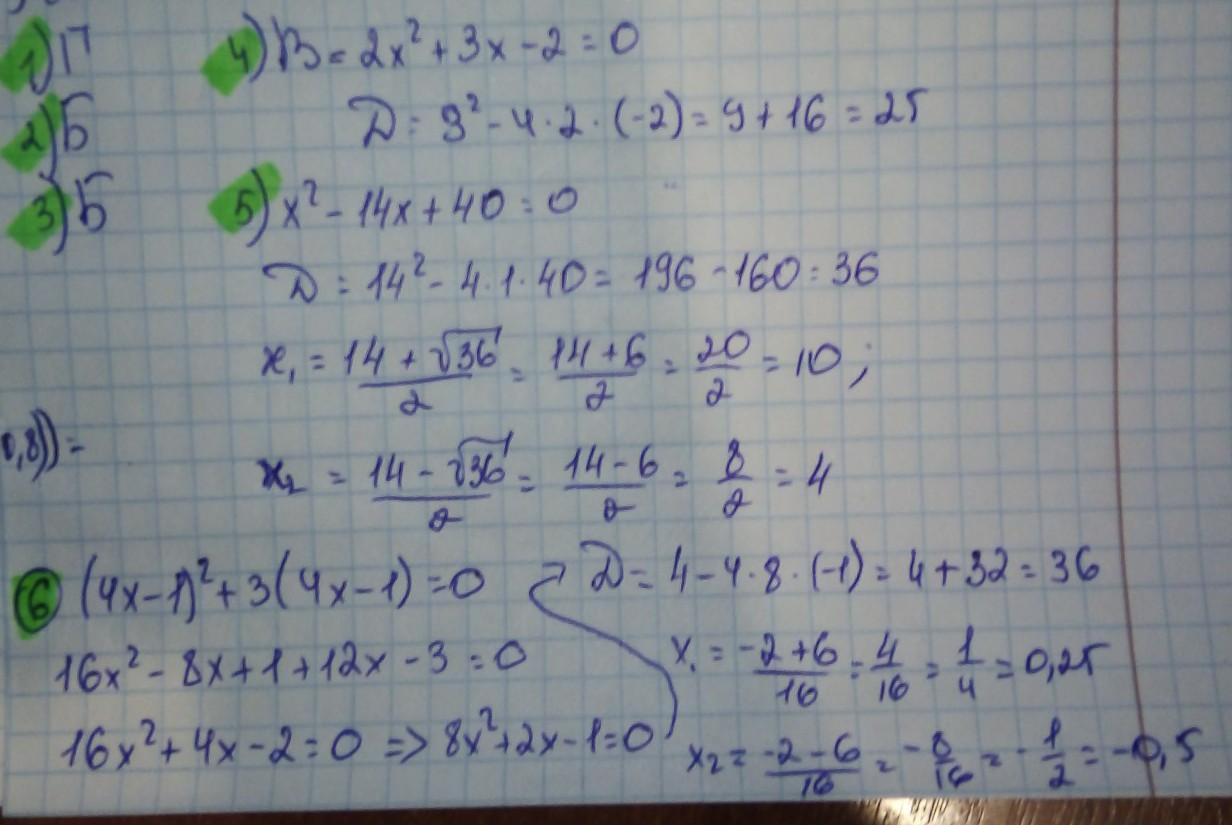 1) Г
2) Б
3) Б
4) В = 2x² + 3x - 2 = 0
D = 3² - 4 · 2 · (-2) = 9 + 16 = 25
5) x² - 14x + 40 = 0
D = 14² - 4 · 1 · 40 = 196 - 160 = 36
x₁ = (14 + √36)/2 = (14 + 6)/2 = 20/2 = 10;
0,8)) =
x₂ = (14 - √36)/2 = (14 - 6)/2 = 8/2 = 4
6) (4x - 1)² + 3(4x - 1) = 0
16x² - 8x + 1 + 12x - 3 = 0
16x² + 4x - 2 = 0 => 8x² + 2x - 1 = 0
D = 4 - 4 · 8 · (-1) = 4 + 32 = 36
x₁ = (-2 + 6)/16 = 4/16 = 1/4 = 0,25
x₂ = (-2 - 6)/16 = -8/16 = -1/2 = -0,5